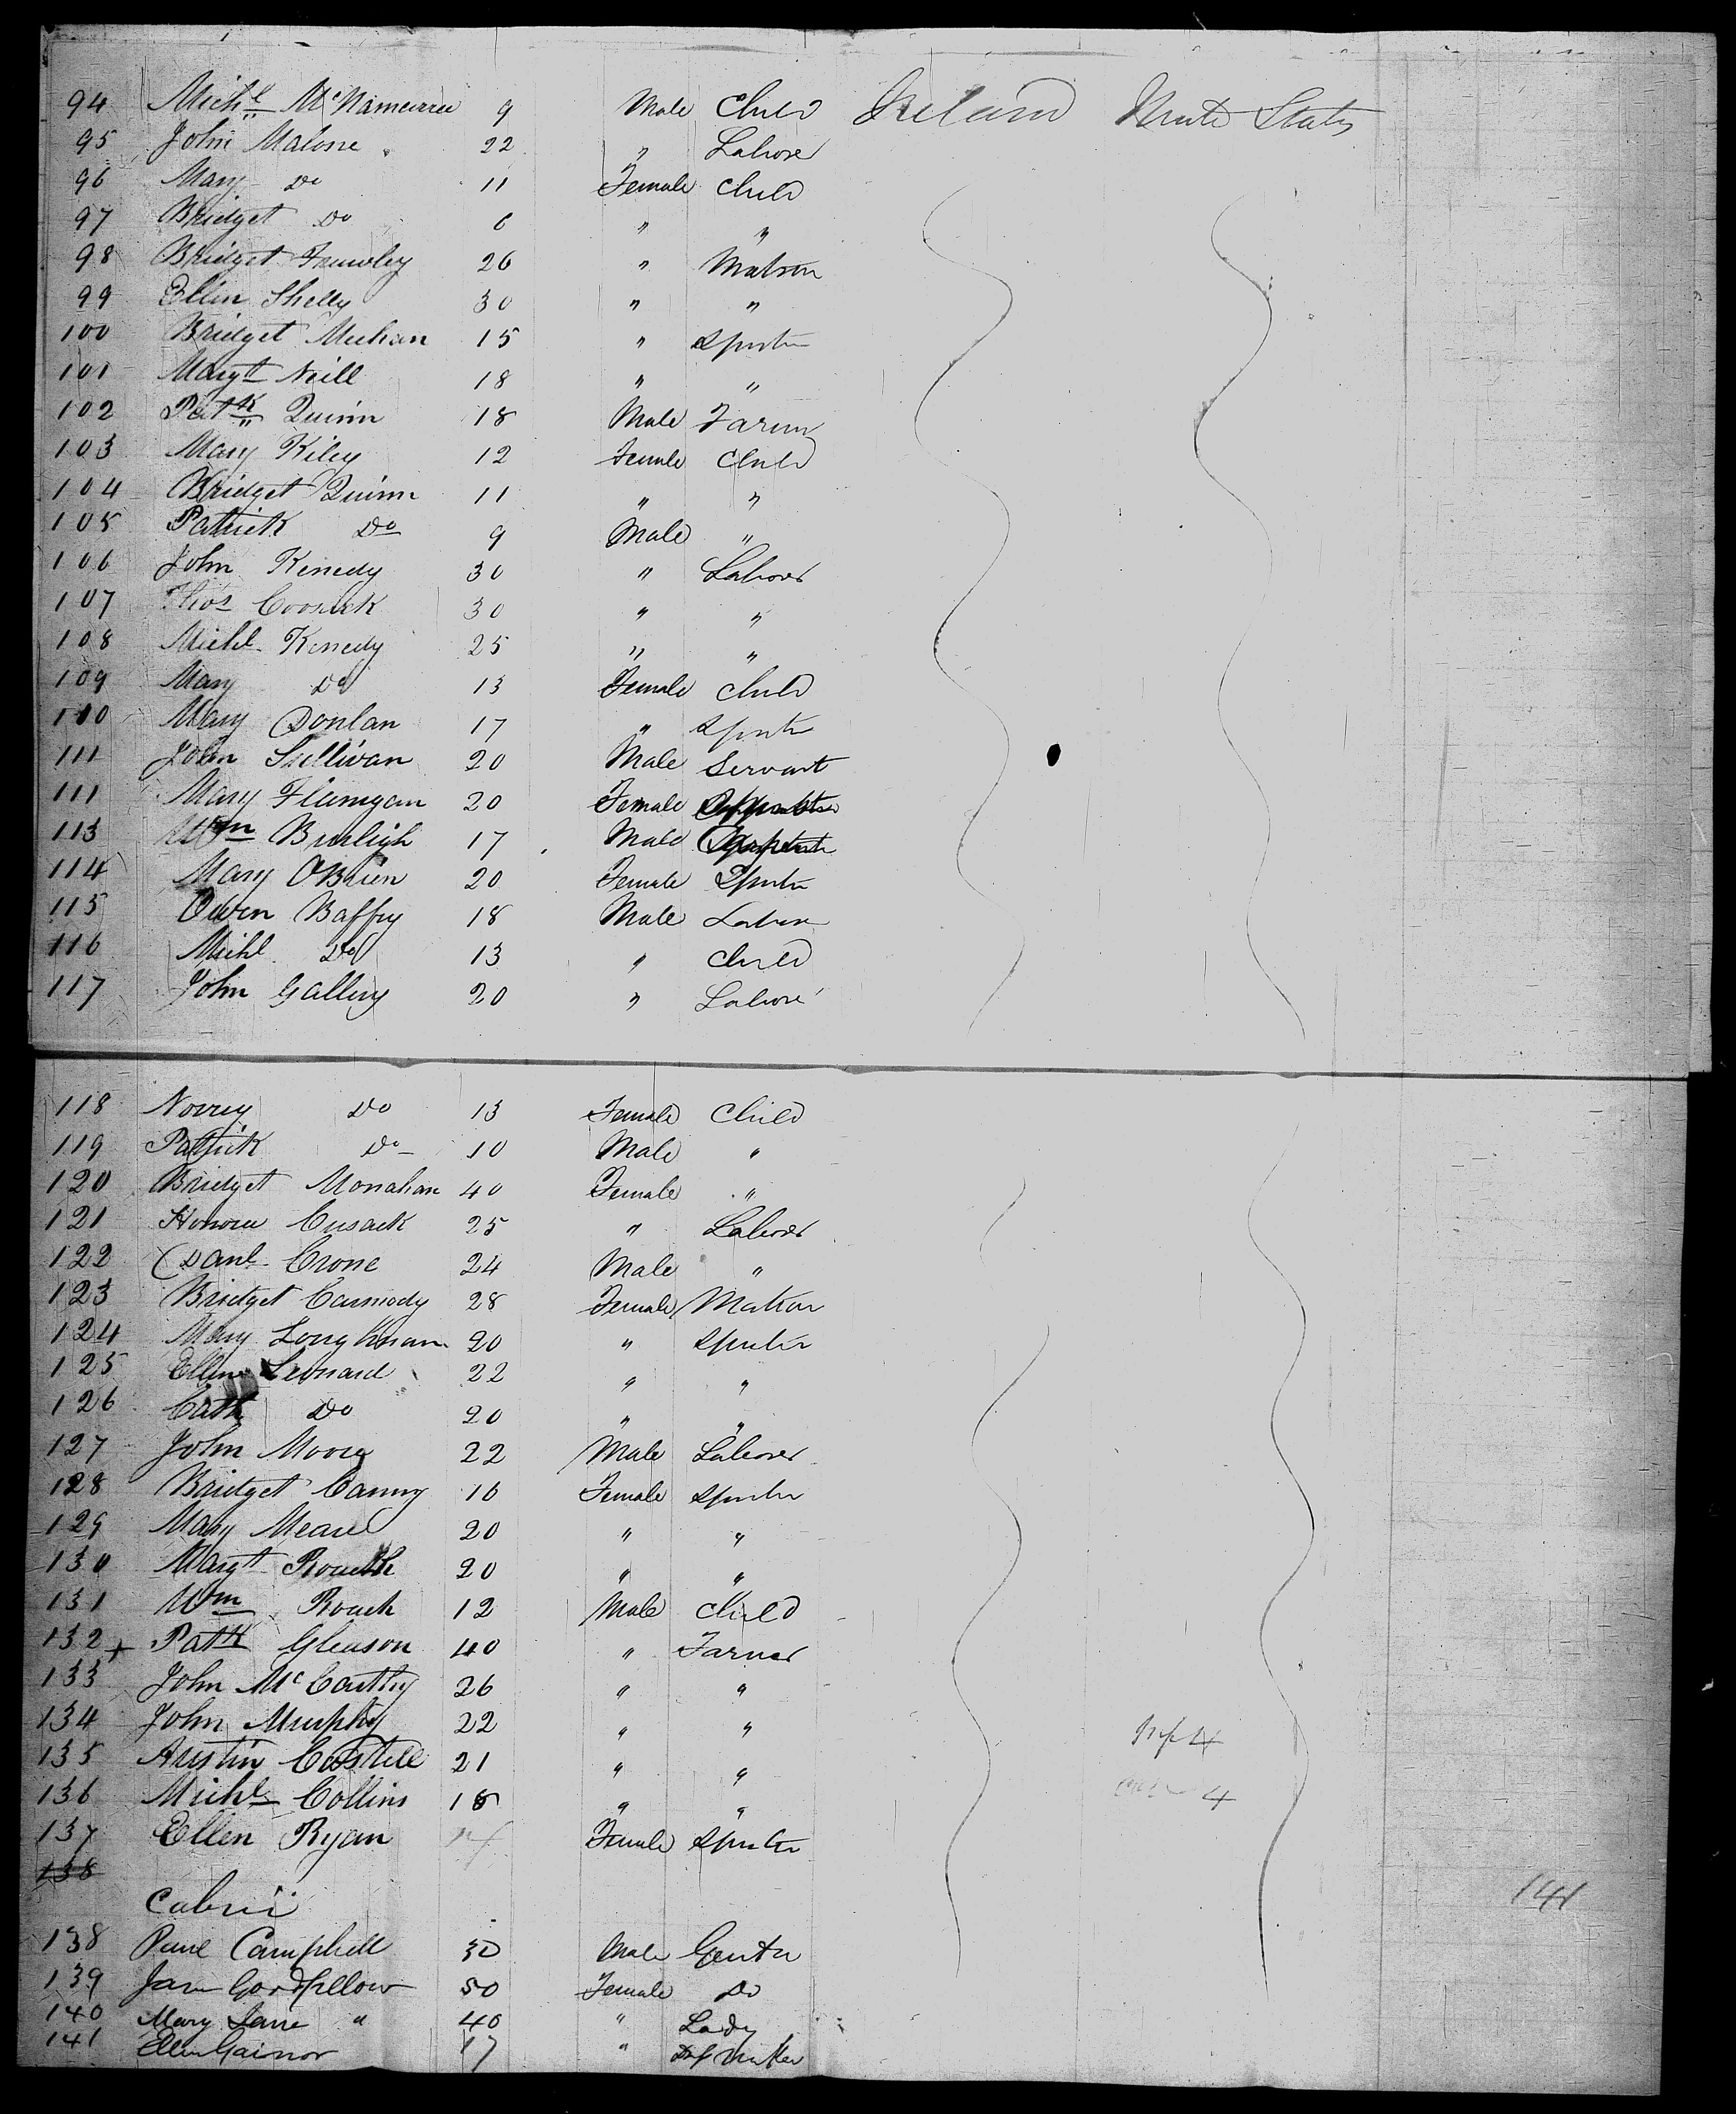 94 Michl McNamara 9 Male Child Ireland Unite States
95 John Malone 22 " Labore
96 Mary Do 11 Female Child
97 Bridget Do 6 " "
98 Bridget 26 " Matron
99 Ellen Shelly 30 " "
100 Bridget Meehan 15 " Spinster
101 Margt Neill 18 " "
102 Patk Quinn 18 Male Farmr
103 Mary Kiley 12 Female Child
104 Bridget Quinn 11 " "
105 Patrick Do 9 Male "
106 John Kenedy 30 " Laborer
107 Thos 30 " "
108 Michl Kenedy 25 " "
109 Mary Do 13 Female Child
110 Mary Donlan 17 " Spinster
111 John Sullivan 20 Male Servant
111 Mary Flanigan 20 Female
113 Wm Burleigh 17 Male
114 Mary OBrien 20 Female Spinster
115 Owen Baffey 18 Male Labore
116 Michl Do 13 " Child
117 John Gallery 20 " Labore
118 Norrey Do 13 Female Child
119 Patrick Do 10 Male "
120 Bridget Monahan 40 Female "
121 Honora Cusack 25 " Laborer
122 Danl Crone 24 Male "
123 Bridget Carmody 28 Female Matron
124 Mary Loughnan 20 " Spinster
125 Ellen Leonard 22 " "
126 Cath Do 20 " "
127 John Moore 22 Male Laborer
128 Bridget Canny 16 Female Spinster
129 Mary Meare 20 " "
130 Margt 20 " "
131 Wm Roach 12 Male Child
132 + Patk Gleason 40 " Farmer
133 John McCarthy 26 " "
134 John Murphy 22 " "
135 Austin Costell 21 " "
136 Michl Collins 18 " "
137 Ellen Ryan Female Spinster
138
Cabin
138 Campbell 30 Male Gentn
139 Goodfellow 50 Female Do
140 Mary Jane " 40 " Lady
141 Ellen Gainor 17 "
4
4
141